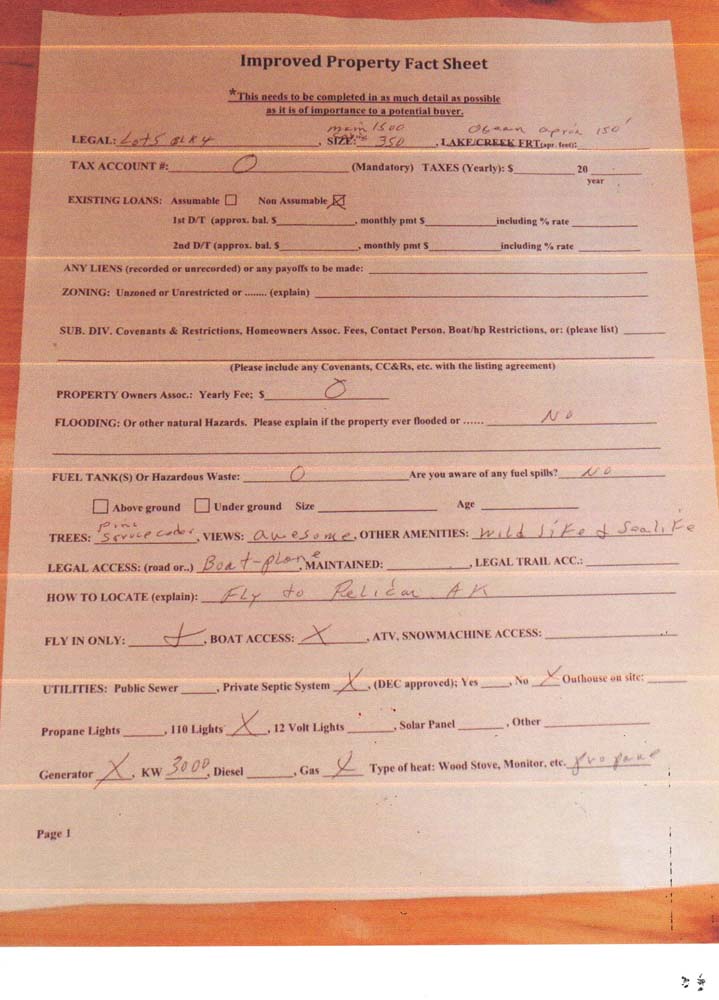 Improved Property Fact Sheet
*This needs to be completed in as much detail as possible
as it is of importance to a potential buyer.
main 1500 Ocean aprox 150'
LEGAL: Lot 5 BLK 4, SIZE: 350, LAKE/CREEK FRT(apr. feet):
TAX ACCOUNT #: O (Mandatory) TAXES (Yearly): $ 20
year
EXISTING LOANS: Assumable ☐ Non Assumable ☒
1st D/T (approx. bal. $, monthly pmt $ including % rate
2nd D/T (approx. bal. $, monthly pmt $ including % rate
ANY LIENS (recorded or unrecorded) or any payoffs to be made:
ZONING: Unzoned or Unrestricted or ........ (explain)
SUB. DIV. Covenants & Restrictions, Homeowners Assoc. Fees, Contact Person, Boat/hp Restrictions, or: (please list)
(Please include any Covenants, CC&Rs, etc. with the listing agreement)
PROPERTY Owners Assoc.: Yearly Fee; $ O
FLOODING: Or other natural Hazards. Please explain if the property ever flooded or ...... NO
FUEL TANK(S) Or Hazardous Waste: O Are you aware of any fuel spills? NO
☐ Above ground ☐ Under ground Size Age
pine
TREES: Spruce cedar, VIEWS: awesome, OTHER AMENITIES: wild life & Sealife
LEGAL ACCESS: (road or..) Boat-plane, MAINTAINED: , LEGAL TRAIL ACC.:
HOW TO LOCATE (explain): Fly to Pelican AK
FLY IN ONLY: X, BOAT ACCESS: X, ATV, SNOWMACHINE ACCESS:
UTILITIES: Public Sewer , Private Septic System X, (DEC approved); Yes , No X Outhouse on site:
Propane Lights , 110 Lights X, 12 Volt Lights , Solar Panel , Other
Generator X, KW 3000, Diesel , Gas X Type of heat: Wood Stove, Monitor, etc. propane
Page 1